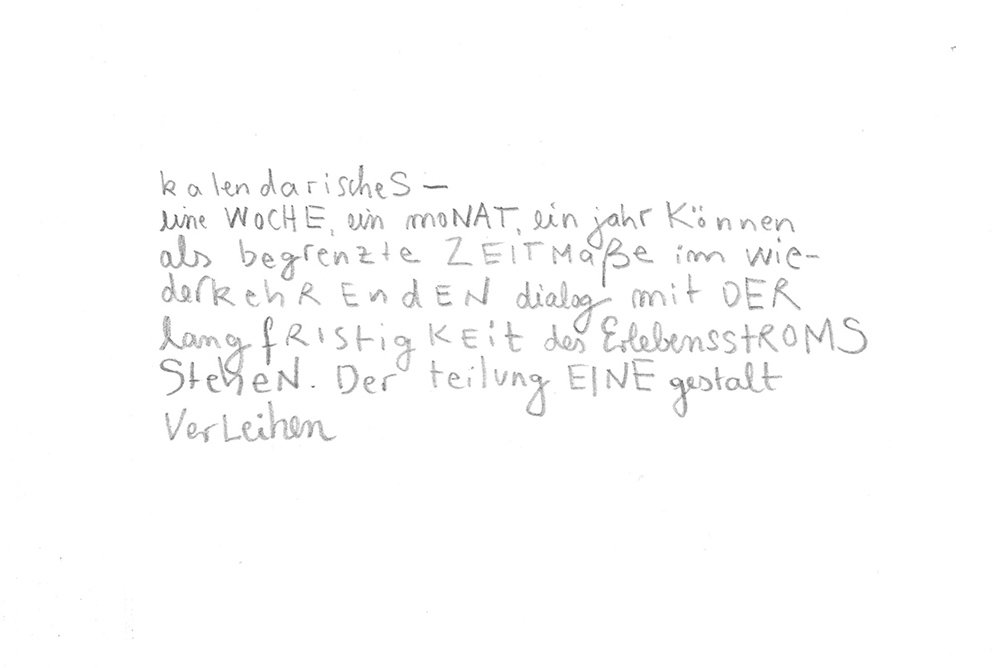 kalendarischeS –
eine WOCHE, ein moNAT, ein jahr Können
als begrenzte ZEITMaße im wie-
derkehREndEN dialog mit DER
langfRIStigKEit des ErlebensstROMS
SteheN. Der teilung EINE gestalt
VerLeihen